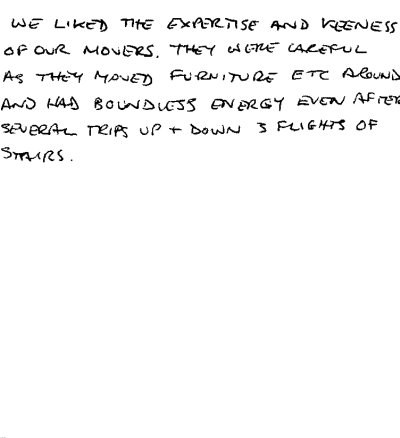 WE LIKED THE EXPERTISE AND KEENESS
OF OUR MOVERS. THEY WERE CAREFUL
AS THEY MOVED FURNITURE ETC AROUND
AND HAD BOUNDLESS ENERGY EVEN AFTER
SEVERAL TRIPS UP + DOWN 3 FLIGHTS OF
STAIRS.